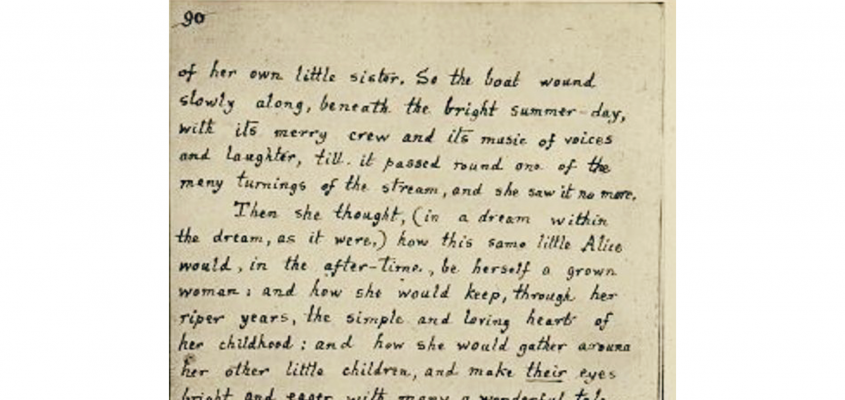 90
of her own little sister. So the boat wound
slowly along, beneath the bright summer-day,
with its merry crew and its music of voices
and laughter, till it passed round one of the
many turnings of the stream, and she saw it no more.
Then she thought, (in a dream within
the dream, as it were,) how this same little Alice
would, in the after-time, be herself a grown
woman: and how she would keep, through her
riper years, the simple and loving heart of
her childhood: and how she would gather around
her other little children, and make their eyes
bright and eager with many a wonderful tale